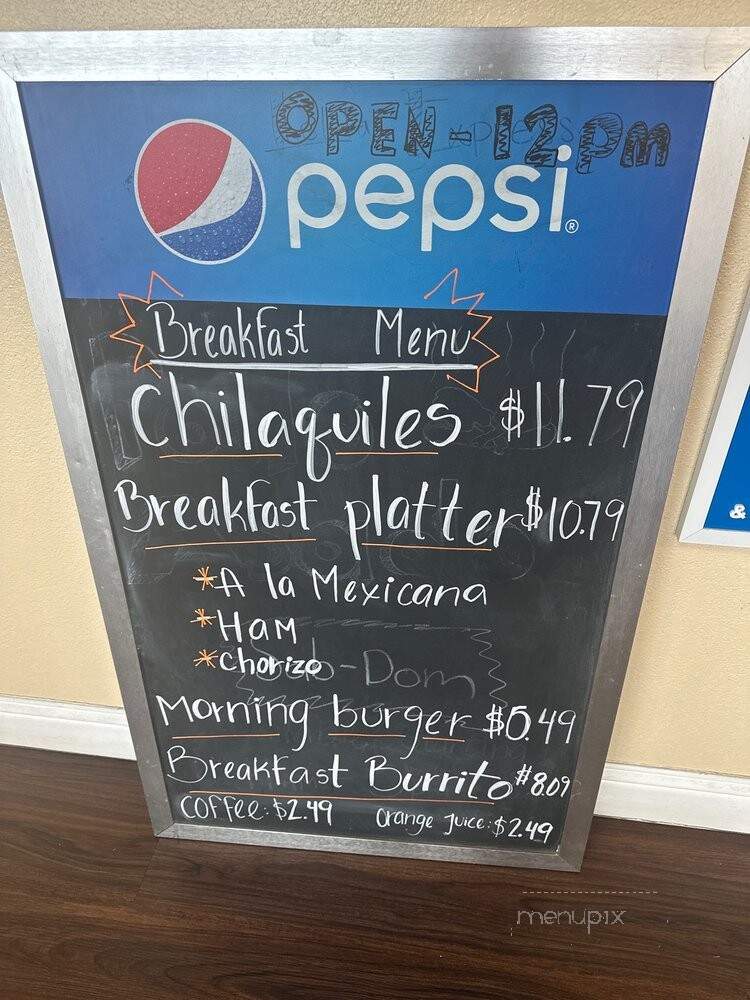 OPEN - 12pm
pepsi®
Breakfast Menu
Chilaquiles $11.79
Breakfast platter $10.79
*A la Mexicana
*HAM
*chorizo
Sub-Dom
Morning burger .49
Breakfast Burrito $8.09
COFFEE: $2.49 Orange Juice: $2.49
&
menupix